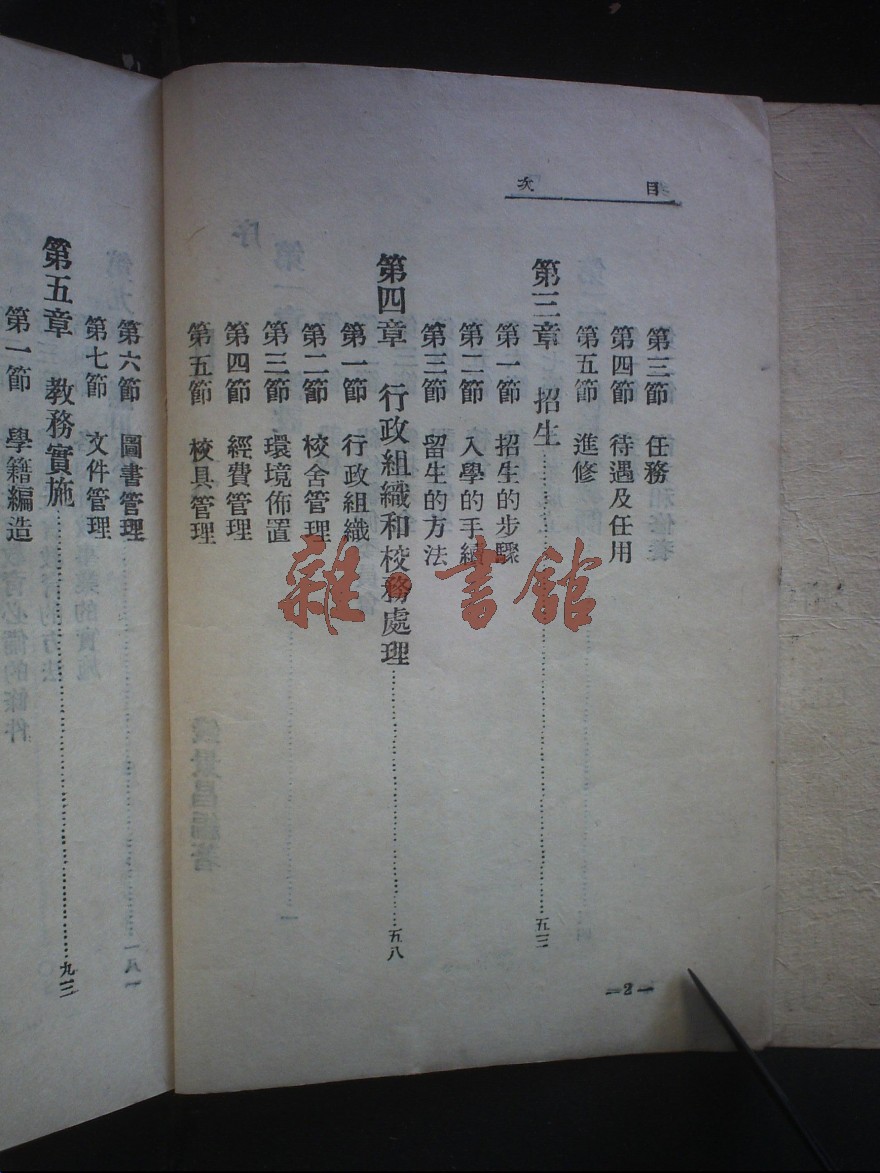 目次
第三節 任務
第四節 待遇及任用
第五節 進修
第三章 招生……五三
第一節 招生的步驟
第二節 入學的手續
第三節 留生的方法
第四章 行政組織和校務處理……五八
第一節 行政組織
第二節 校舍管理
第三節 環境佈置
第四節 經費管理
第五節 校具管理
—2—
第六節 圖書管理
第七節 文件管理
第五章 教務實施……九三
第一節 學籍編造
雜·書館